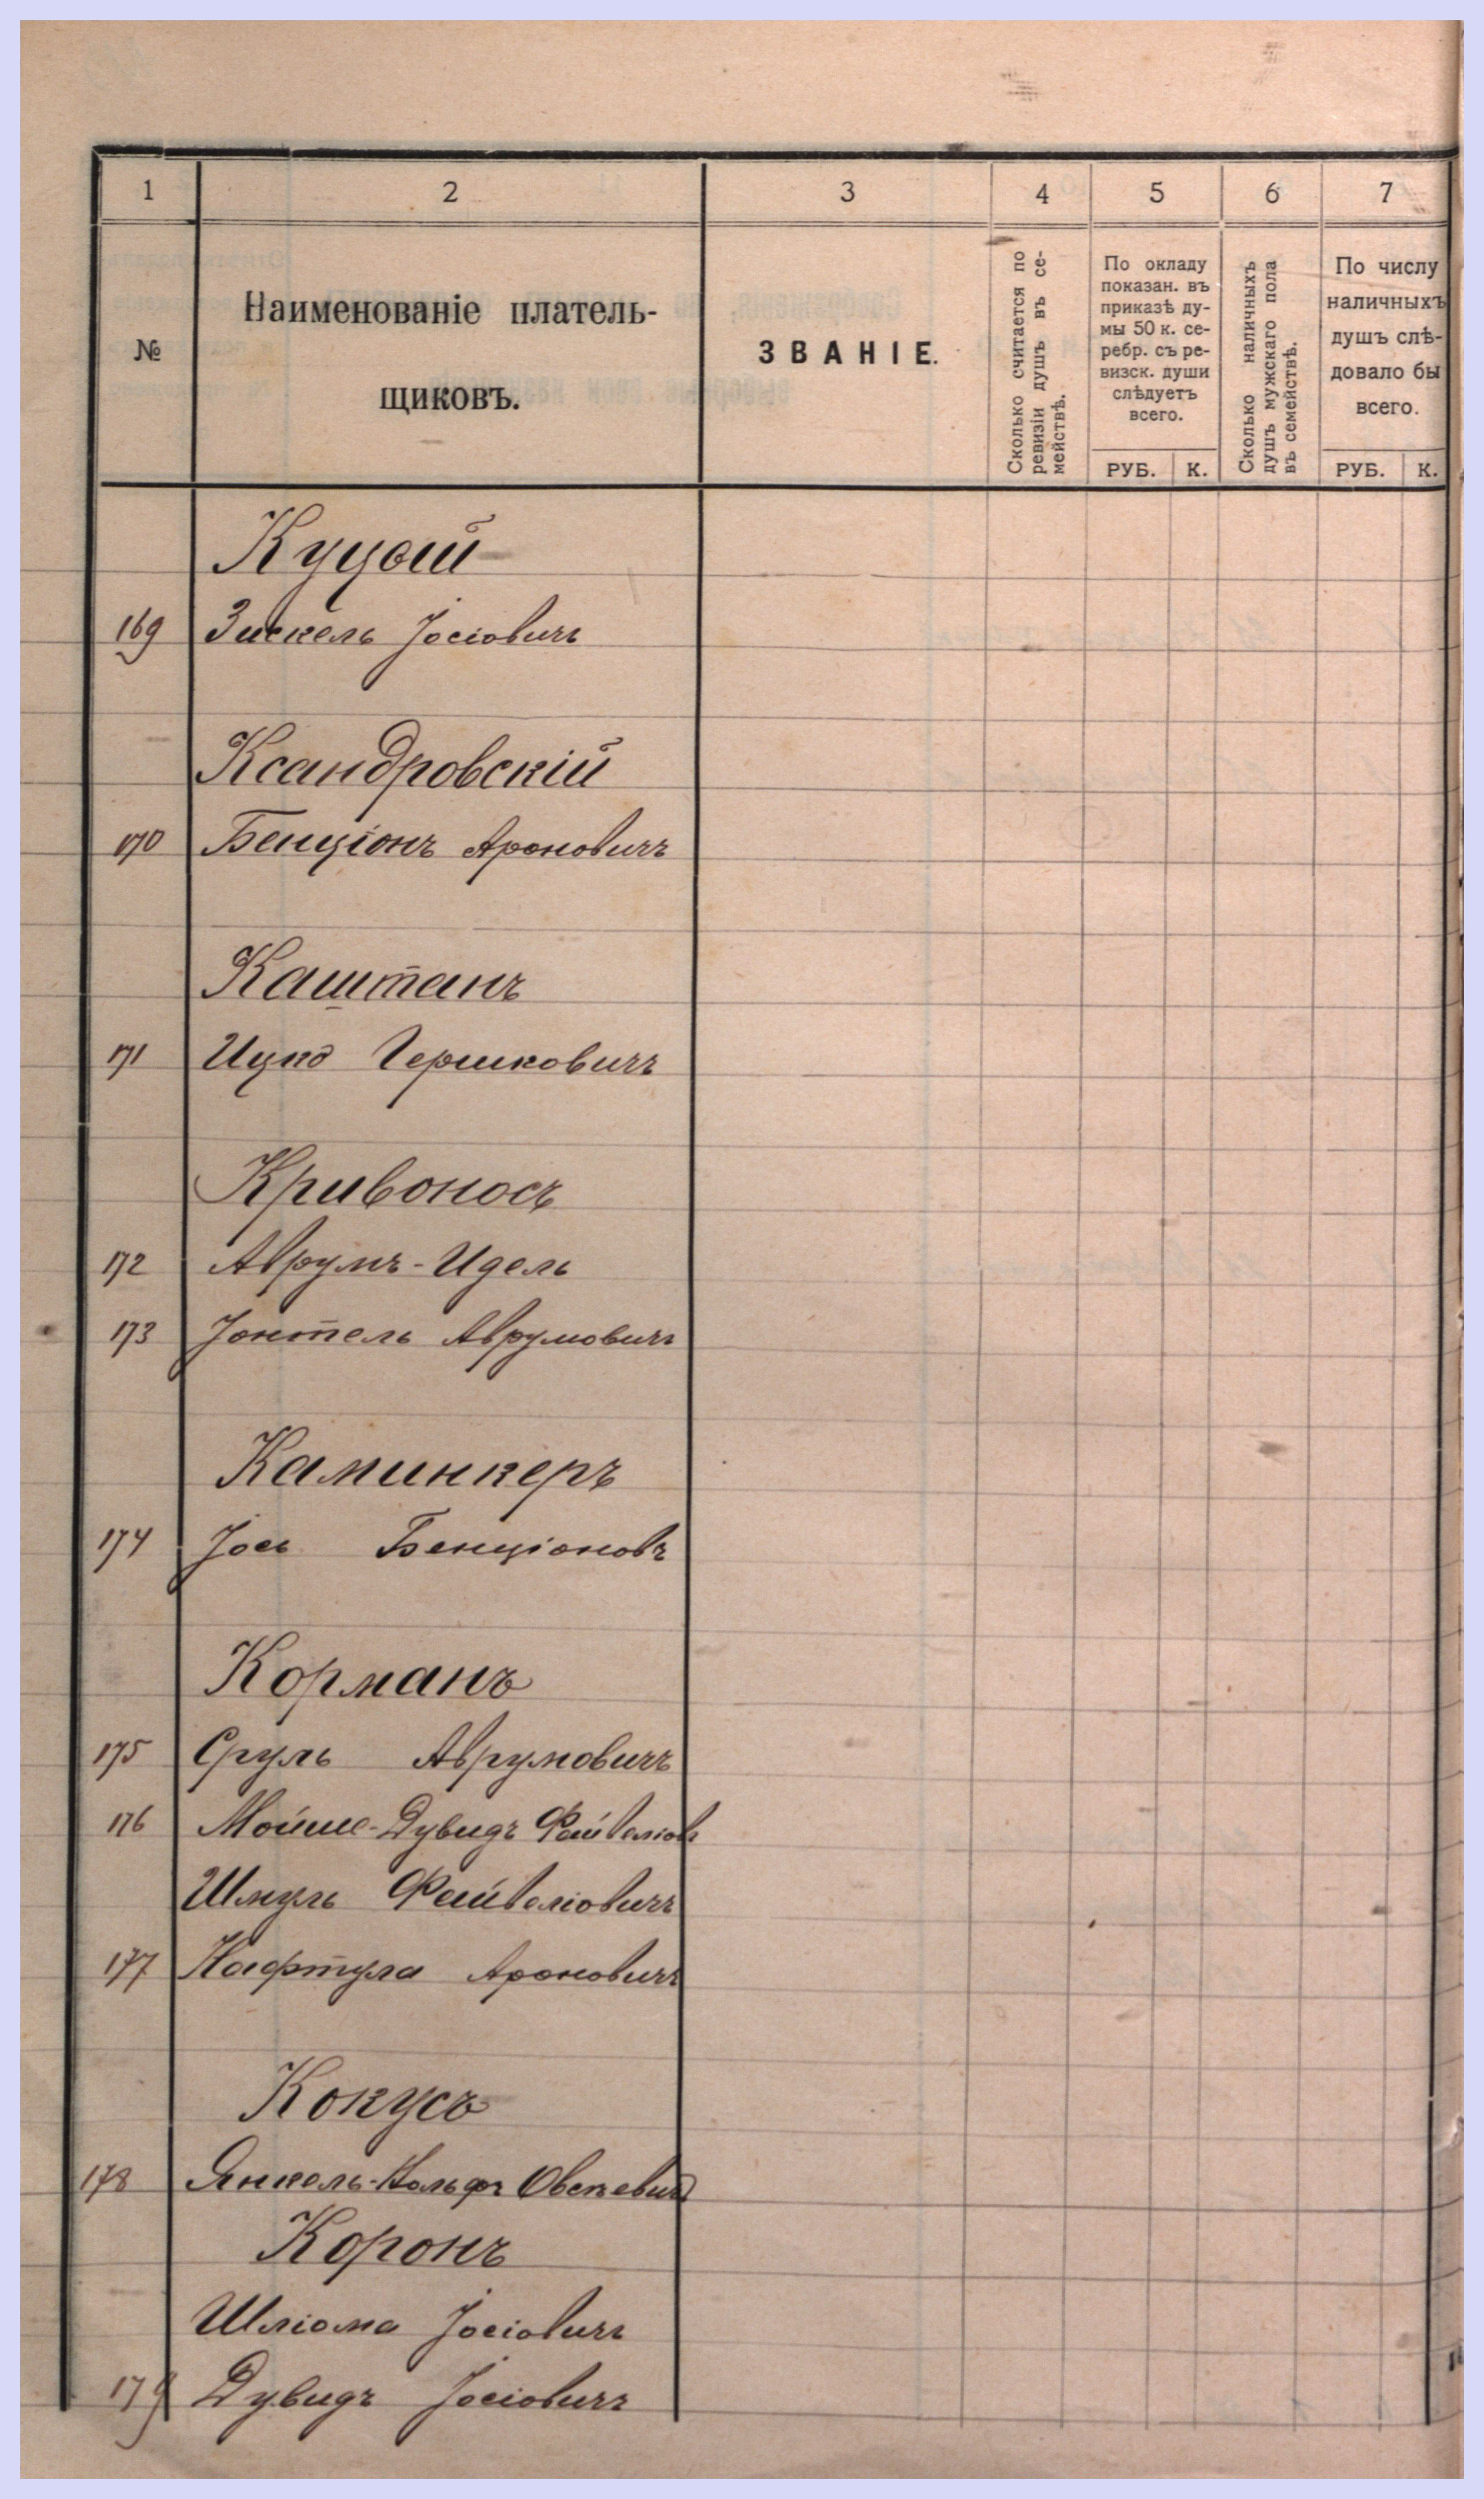 1 2 3 4 5 6 7
№
Наименованіе платель-
щиковъ.
ЗВАНІЕ.
Сколько считается по
ревизіи душъ въ се-
мействѣ.
По окладу
показан. въ
приказѣ ду-
мы 50 к. се-
ребр. съ ре-
визск. души
слѣдуетъ
всего.
РУБ. К.
Сколько наличныхъ
душъ мужскаго пола
въ семействѣ.
По числу
наличныхъ
душъ слѣ-
довало бы
всего.
РУБ. К.
Куцый
169 Зискель Іосіовичъ
Ксандровскій
170 Бенціонъ Ароновичъ
Каштанъ
171 Ицко Гершковичъ
Кривоносъ
172 Аврумъ-Идель
173 Іонтель Аврумовичъ
Каминкеръ
174 Іось Бенціоновъ
Корманъ
175 Сруль Аврумовичъ
176 Мойше-Дувидъ Файвеліов
Шмуль Файвеліовичъ
177 Нафтула Ароновичъ
Кокусъ
178 Янкель-Вольфъ Овсѣевичъ
Коронъ
Шліома Іосіовичъ
179 Дувидъ Іосіовичъ